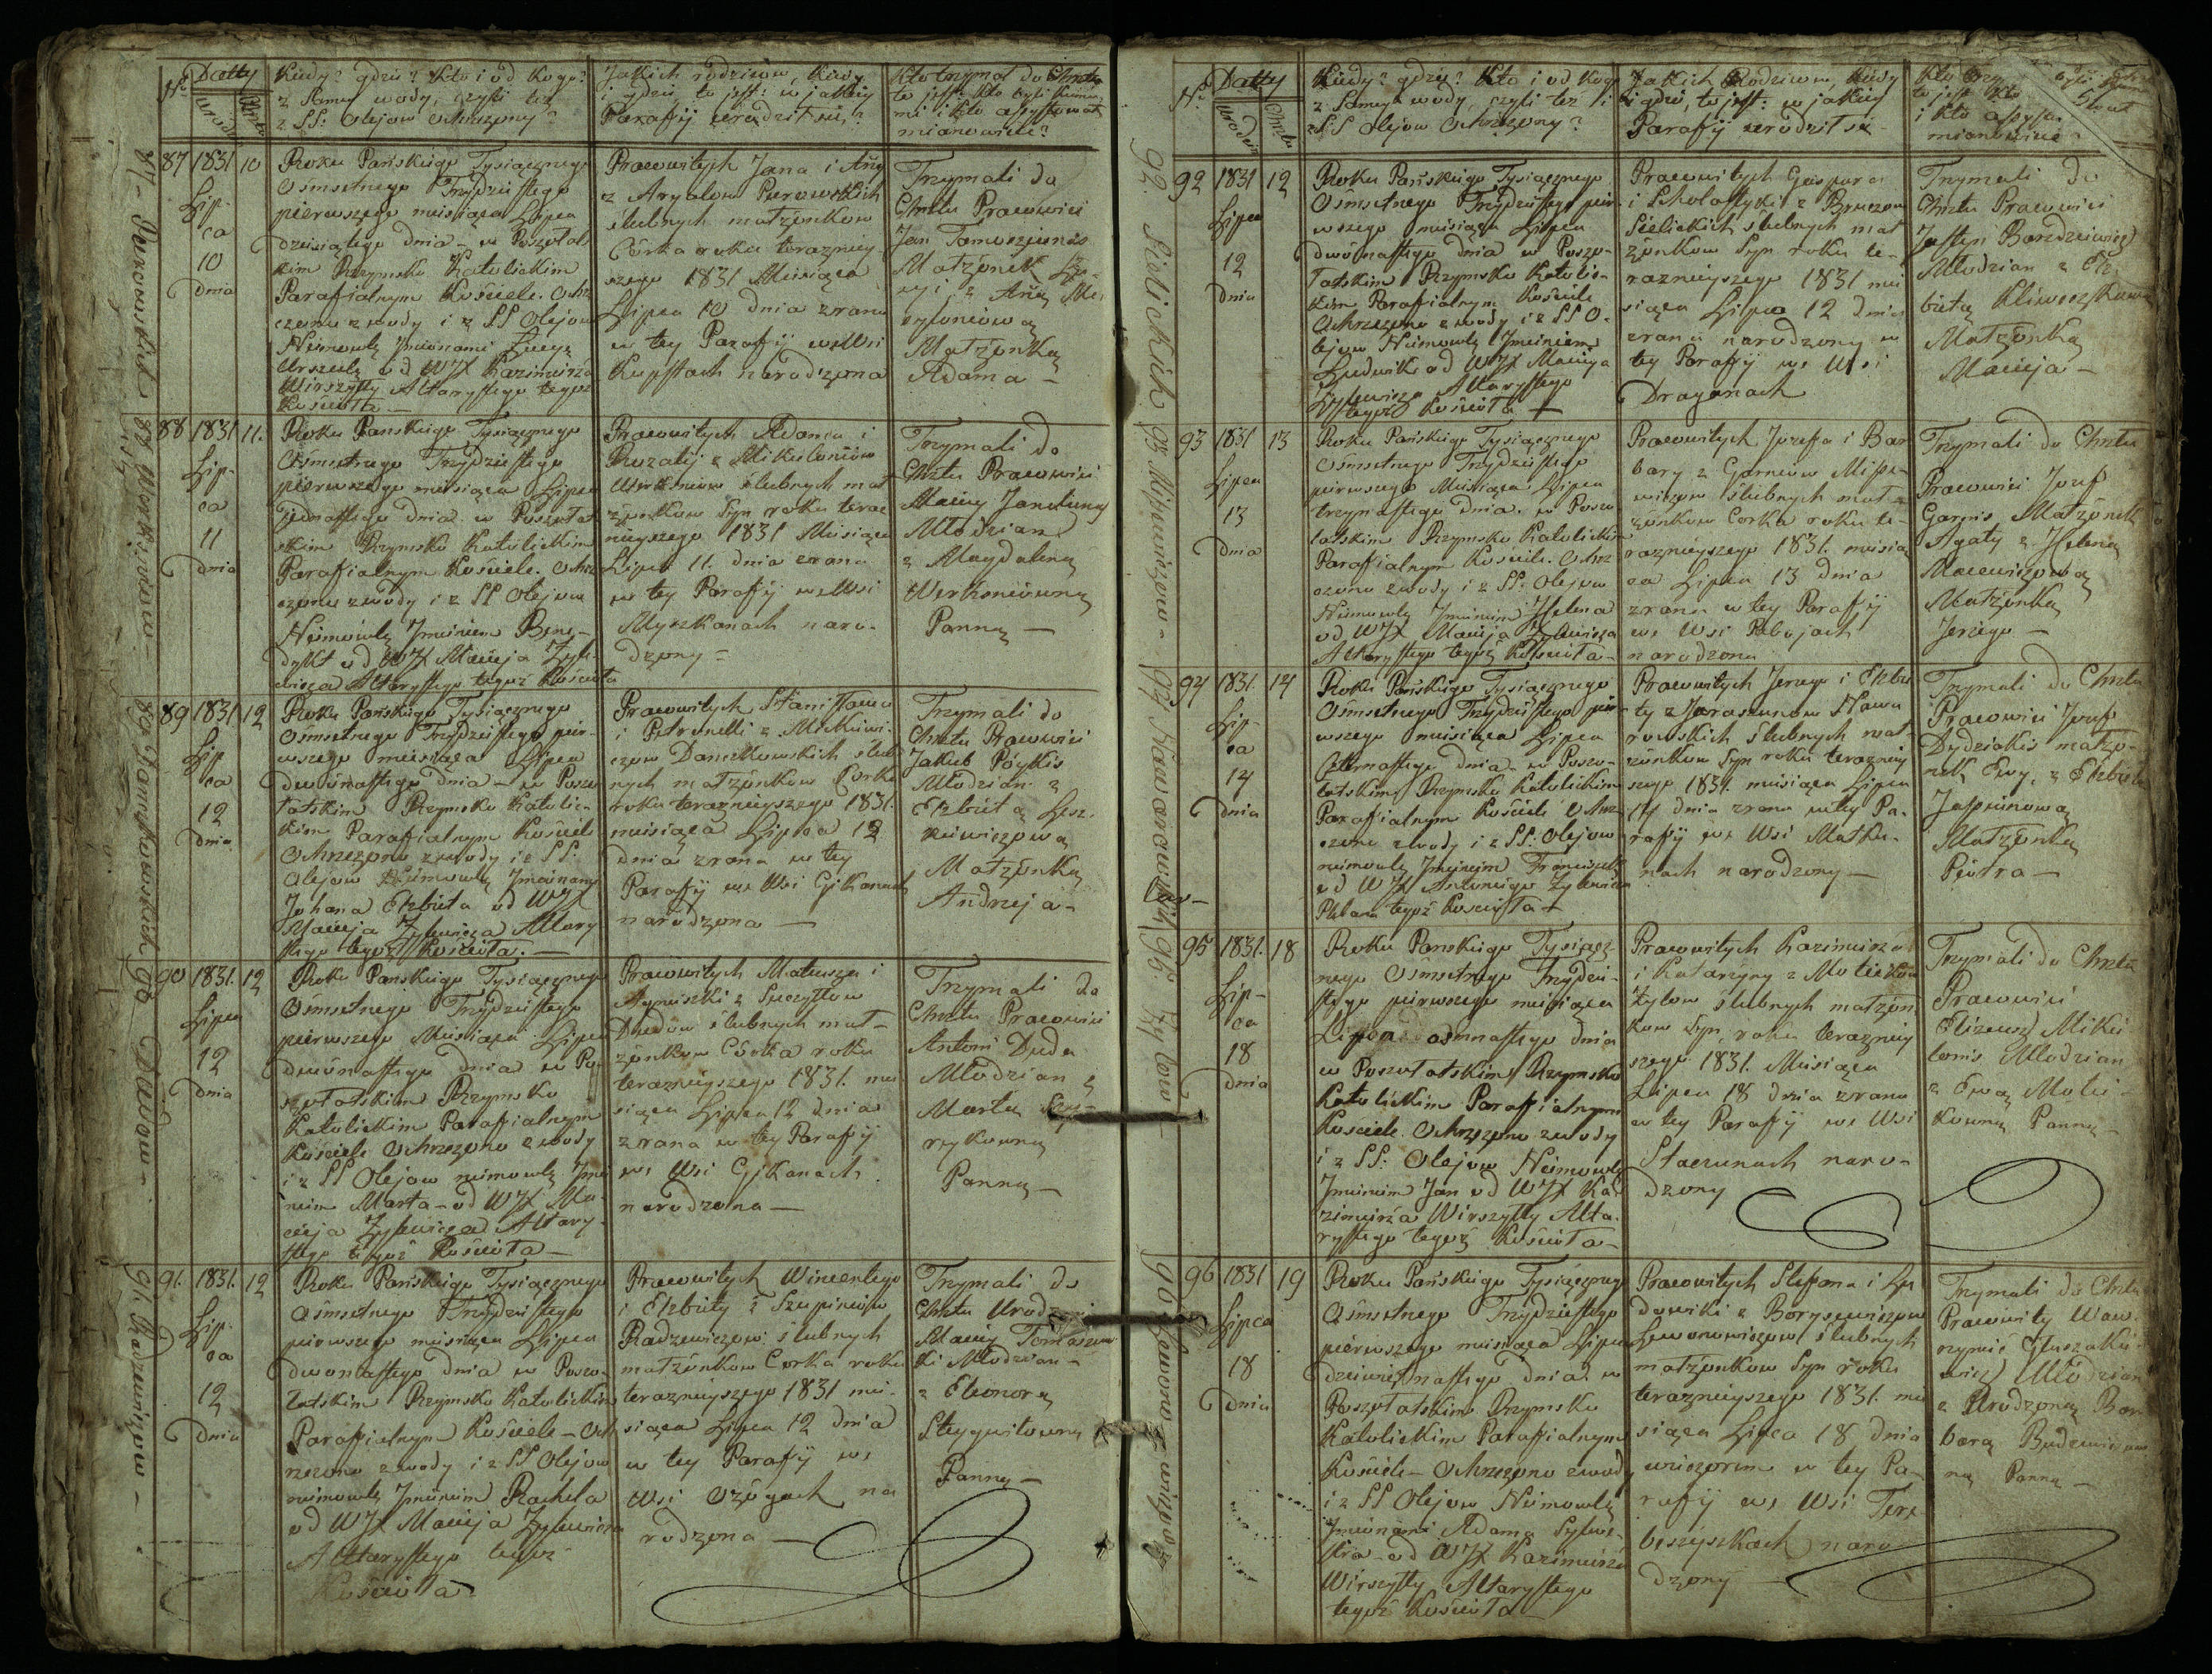 No
Datty
Urodz
Chrztu
Kiedy? gdzie? Kto i od Kogo?
z Samey wody, czyli też
z SS: Olejow Ochrzczony?
Jakich rodziców, Kiedy
i gdzie to jest: w jakiey
Parafij urodził się?
Kto trzymał do Chrztu
to jest: Kto byli Kumami
i kto assystował
mianowicie?
87 - Perowskich
87
1831
Lip-
ca
10
dnia
10
Roku Pańskiego Tysiącznego
Ośmsetnego Trzydziestego
pierwszego miesiąca Lipca
dziesiątego dnia - w Poszołats
kim Rzymsko Katolickim
Parafialnym Kościele. Ochrz
czono z wody i z SS Olejow
Niemowlę Jmionami Łucyę
Urszulę od WJX Kazimierza
Wirszyłły Altarystego tegoż
Kościoła -
Pracowitych Jana i Anny
z Perowskich
ślubnych małżonków
Córka roku terazniey
szego 1831 Miesiąca
Lipca 10 dnia zrana
w tey Parafij we Wsi
Kupstach narodzona
Trzymali do
Chrztu Pracowici
Jan Tomoszunas
Małżonek
z Anną
Małżonką
Adama -
88
1831
Lip-
ca
11
dnia
11.
Roku Pańskiego Tysiącznego
Ośmsetnego Trzydziestego
pierwszego miesiąca Lipca
jednastego dnia w Poszołat
skim Rzymsko Katolickim
Parafialnym Kościele. Ochrz
czono z wody i z SS Olejow
Niemowlę Jmieniem Bene-
dykt od WJX Macieja Żyle-
wicza Altarystego tegoż Kościoła
Pracowitych Adama i
Rozalij z Mikulaniów
Werksniow ślubnych mał
żonkow Syn roku teraz
nieyszego 1831 Miesiąca
Lipca 11. dnia zrana
w tey Parafij we Wsi
Myszkanach naro-
dzony -
Trzymali do
Chrztu Pracowici
Maciey Janeluny
Młodzian
z Magdaleną
Werksniówną
Panną -
89 Danitkowskich
89
1831
Lip
ca
12
dnia
12
Roku Pańskiego Tysiącznego
Ośmsetnego Trzydziestego pier-
wszego miesiąca Lipca
dwónastego dnia - w Poszo
łatskim Rzymsko Katolic-
kim Parafialnym Kościele
Ochrzczono z wody i z SS.
Olejow Niemowlę Jmionami
Johana Elżbieta od WJX
Macieja Żylewicza Altary
stego tegoż Kościoła. -
Pracowitych Stanisława
i Petronelli z Mickiewi-
czow Danitkowskich ślub
nych małżonkow Córka
roku teraznieyszego 1831.
miesiąca Lipca 12
dnia zrana w tey
Parafij we Wsi Gikanach
narodzona -
Trzymali do
Chrztu Pracowici
Jakub Poykis
Młodzian z
Elżbietą Lesz-
kiewiczową
Małżonką
Andrzeja -
90 Dudow -
90
1831.
Lipca
12
dnia
12
Roku Pańskiego Tysiącznego
Ośmsetnego Trzydziestego
pierwszego Miesiąca Lipca
dwónastego dnia w Po-
szołatskim Rzymsko
Katolickim Parafialnym
Kościele Ochrzczono z wody
i z SS Olejow niemowlę Jmie
niem Marta - od WJX Ma-
cieja Żylewicza Altary-
stego tegoż Kościoła -
Pracowitych Mateusza i
Agnieszki z Syczyłłow
Dudów ślubnych mał-
żonkow Córka roku
teraznieyszego 1831. mie
siąca Lipca 12 dnia
zrana w tey Parafij
we Wsi Gikanach
narodzona -
Trzymali do
Chrztu Pracowici
Antoni Duda
Młodzian z
Martą
rykowną
Panną -
91. Radzewiczow -
91.
1831.
Lip-
ca
12
dnia
12
Roku Pańskiego Tysiącznego
Ośmsetnego Trzydziestego
pierwszego miesiąca Lipca
dwonastego dnia w Poszo-
łatskim Rzymsko Katolickim
Parafialnym Kościele - Och
rzczono z wody i z SS Olejow
niemowlę Jmieniem Rachela
od WJX Macieja Żylewicza
Altarystego tegoż
Kościoła
Pracowitych Wincentego
i Elżbiety z Szupiniow
Radzewiczow ślubnych
małżonkow Corka roku
teraznieyszego 1831 mie-
siąca Lipca 12 dnia
w tey Parafij we
Wsi Ożogach na
rodzona -
Trzymali do
Chrztu Urodzeni
Maciey Tomaszew
ki Młodzian -
z Eleonorą
Steygwiłowną
Panną -
No
Datty
Urodzin
Chrztu
Kiedy? gdzie? Kto i od Kogo
z Samey wody, czyli też i
z SS Olejow Ochrzczony?
Jakich Rodziców, Kiedy
i gdzie, to jest: w jakiey
Parafij urodził się -
to jest Kto
i kto assys-
mianowicie
92. Sielickich
92
1831
Lipca
12
dnia
12
Roku Pańskiego Tysiącznego
Ośmsetnego Trzydziestego pier-
wszego miesiąca Lipca
dwónastego dnia w Poszo-
łatskim Rzymsko Katolic-
kim Parafialnym Kościele
Ochrzczono z wody i z SS O-
lejow Niemowlę Jmieniem
Ludwik od WJX Macieja
Żylewicza Altarystego
tegoż Kościoła -
Pracowitych Gaspara
i Scholastyki z
Sielickich ślubnych mał
żonkow Syn roku te-
raznieyszego 1831 mie
siąca Lipca 12 dnia
zrana narodzony w
tey Parafij we Wsi
Draganach
Trzymali do
Chrztu Pracowici
Justyn Bordzwicz
Młodzian z Elż-
bietą
Małżonką
Macieja -
93 Misiewiczow -
93
1831
Lipca
13
dnia
13
Roku Pańskiego Tysiącznego
Ośmsetnego Trzydziestego
pierwszego Miesiąca Lipca
trzynastego dnia. w Poszo
łatskim Rzymsko Katolickim
Parafialnym Kościele. Ochrz
czono z wody i z SS. Olejow
Niemowlę Jmieniem Helena
od WJX Macieja Żylewicza
Altarystego tegoż Kościoła -
Pracowitych Jozefa i Bar
bary z Garniow Misie-
wiczow ślubnych mał-
żonkow Corka roku te-
raznieyszego 1831. miesią
ca Lipca 13 dnia
zrana w tey Parafij
we Wsi Pobojach
narodzona
Trzymali do Chrztu
Pracowici Jozef
Garnis Małżonek
Agaty z Heleną
Macewiczową
Małżonką
Jerzego -
94
1831.
Lip-
ca
14
dnia
14
Roku Pańskiego Tysiącznego
Ośmsetnego Trzydziestego pier
wszego miesiąca Lipca
czternastego dnia - w Poszo-
łatskim Rzymsko Katolickim
Parafialnym Kościele Ochrz
czono z wody i z SS: Olejow
niemowlę Jmieniem Franciszek
od WJX Antoniego Żylewicza
Plebana tegoż Kościoła -
Pracowitych Jerzego i Elżbie
ty z Jaraszunow Nawa
rowskich ślubnych mał-
żonkow Syn roku teraźniey
szego 1831. miesiąca Lipca
14 dnia zrana w tey Pa-
rafij we Wsi Matku-
nach narodzony -
Trzymali do Chrztu
Pracowici Jozef
Dydziokis małżo-
nek Ewy, z Elżbietą
Jasiunową
Małżonką
Piotra -
95 Żyłow -
95
1831.
Lip-
ca
18
dnia
18
Roku Pańskiego Tysiącz
nego Ośmsetnego Trzydzie-
stego pierwszego miesiąca
Lipca osmnastego dnia
w Poszołatskim Rzymsko
Katolickim Parafialnym
Kościele. Ochrzczono z wody
i z SS: Olejow Niemowlę
Jmieniem Jan od WJX Ka-
zimierza Wirszyłły Alta-
rystego tegoż Kościoła -
Pracowitych Kazimierza
i Katarzyny z Motiekow
Żyłow ślubnych małżon
kow Syn, roku teraźniey
szego 1831. Miesiąca
Lipca 18 dnia zrana
w tey Parafij we Wsi
Staczunach naro-
dzony
Trzymali do Chrztu
Pracowici
Elizeusz Miku
lonis Młodzian
z Ewą Motie-
kowną Panną -
96 Lewonowiczow
96
1831
Lipca
18
dnia
19
Roku Pańskiego Tysiącznego
Ośmsetnego Trzydziestego
pierwszego miesiąca Lipca
dziewiętnastego dnia w
Poszołatskim Rzymsko
Katolickim Parafialnym
Kościele - Ochrzczono z wody
i z SS Olejow Niemowlę
Jmionami Adama Sylwe-
stra - od WJX Kazimierza
Wirszyłły Altarystego
tegoż Kościoła -
Pracowitych Stefana i Lu
dowiki z Borysewiczow
Lewonowiczow ślubnych
małżonkow Syn roku
teraznieyszego 1831. mie
siąca Lipca 18 dnia
wieczorem w tey Pa-
rafij we Wsi Tere-
beszyszkach naro
dzony
Trzymali do Chrztu
Pracowity Waw-
rzyniec Głuszakie-
wicz Młodzian
z Urodzoną Bar
barą
ną Panną -